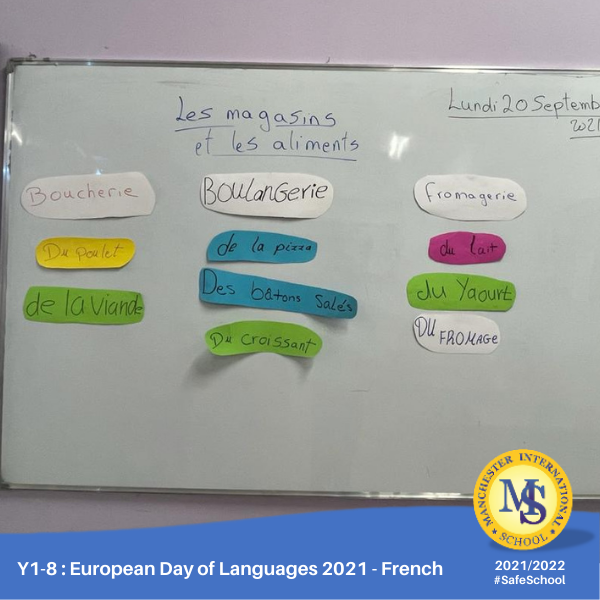 Les magasins
et les aliments
Lundi 20 Septemb
2021
Boucherie
Du poulet
de la Viande
BOULANGerie
de la pizza
Des bâtons Salés
Du croissant
fromagerie
du lait
du Yaourt
DU FROMAGE
MANCHESTER INTERNATIONAL
MIS
SCHOOL
Y1-8 : European Day of Languages 2021 - French
2021/2022
#SafeSchool